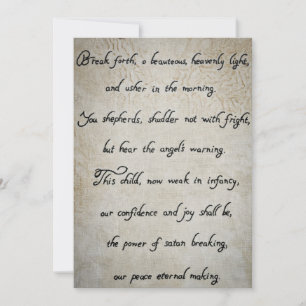 Break forth, o beauteous, heavenly light,
and usher in the morning.
You shepherds, shudder not with fright,
but hear the angel's warning.
This child, now weak in infancy,
our confidence and joy shall be,
the power of satan breaking,
our peace eternal making.